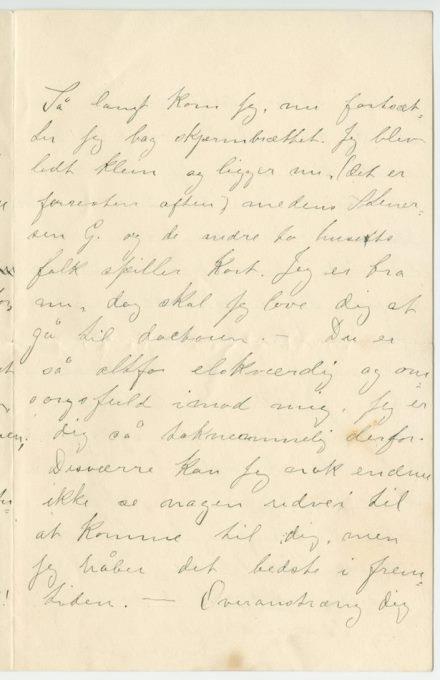 Så langt kom jeg, nu fortsæt-
ter jeg bag skjermbrættet. Jeg blev
lidt klein og ligger nu, (det er
forresten aften) medens
sen G. og de andre to husets
folk spiller kort. Jeg er bra
nu, dog skal jeg love dig at
gå til doctoren. – Du er
så altfor elskværdig og om=
sorgsfuld imod mig. Jeg er
dig så taknemmelig derfor.
Desværre kan jeg nok endnu
ikke se nogen udvei til
at komme til dig, men
jeg håber det bedste i frem=
tiden. — Overanstræng dig